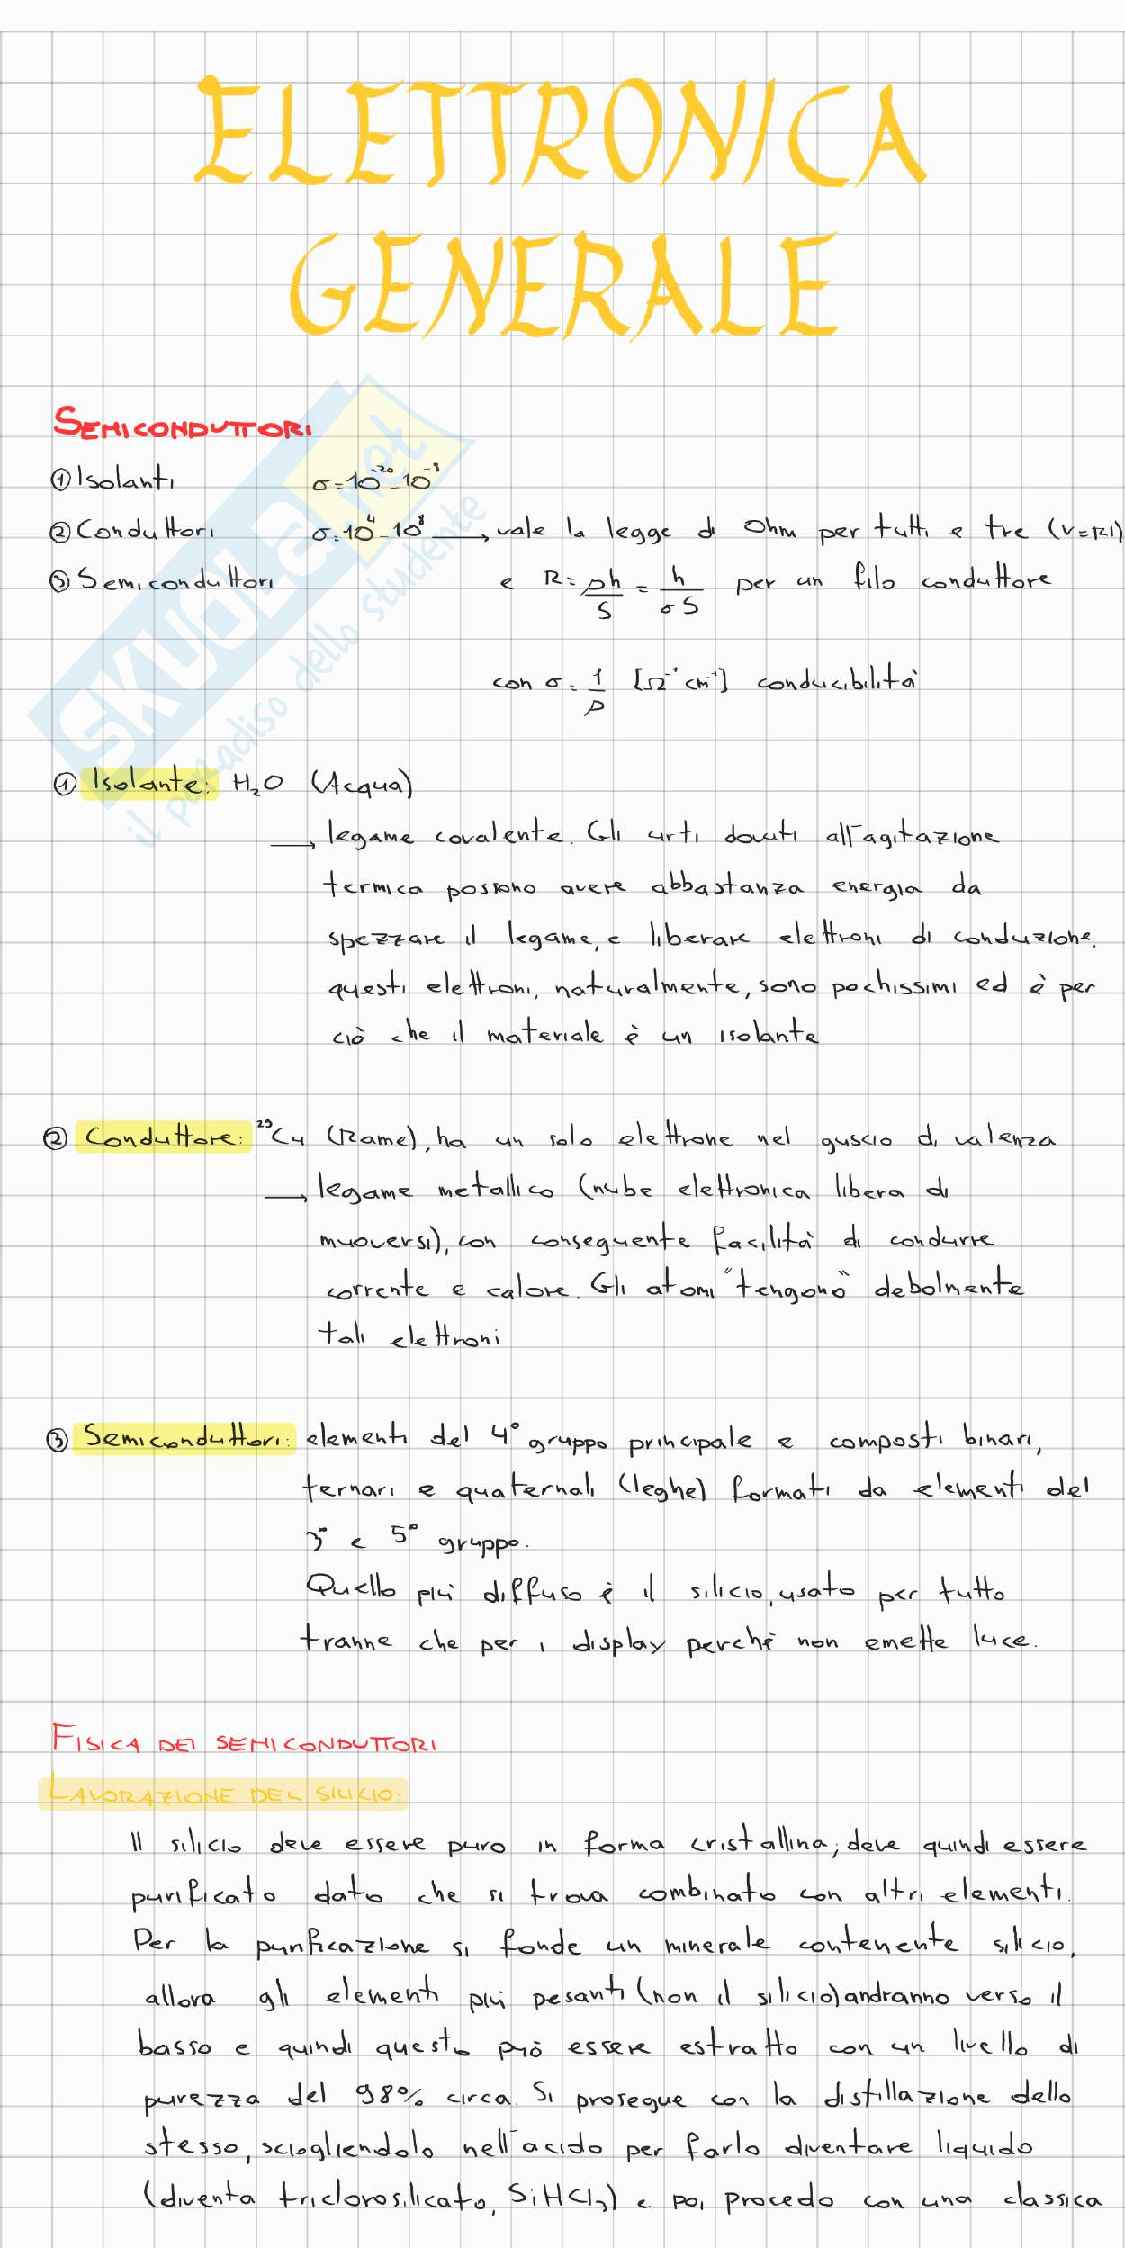 ELETTRONICA
GENERALE
SEMICONDUTTORI
① Isolanti σ=10⁻²⁰-10⁻⁸
② Conduttori σ=10⁴-10⁸ → vale la legge di Ohm per tutti e tre (V=RI)
③ Semiconduttori e R=ρh/S = h/σS per un filo conduttore
con σ=1/ρ [Ω⁻¹cm⁻¹] conducibilità
① Isolante: H₂O (Acqua)
→ legame covalente. Gli urti dovuti all'agitazione
termica possono avere abbastanza energia da
spezzare il legame, e liberare elettroni di conduzione.
questi elettroni, naturalmente, sono pochissimi ed è per
ciò che il materiale è un isolante
② Conduttore: ²⁹Cu (Rame), ha un solo elettrone nel guscio di valenza
→ legame metallico (nube elettronica libera di
muoversi), con conseguente facilità di condurre
corrente e calore. Gli atomi "tengono" debolmente
tali elettroni
③ Semiconduttori: elementi del 4° gruppo principale e composti binari,
ternari e quaternali (leghe) formati da elementi del
3° e 5° gruppo.
Quello più diffuso è il silicio, usato per tutto
tranne che per i display perché non emette luce.
FISICA DEI SEMICONDUTTORI
LAVORAZIONE DEL SILICIO:
Il silicio deve essere puro in forma cristallina; deve quindi essere
purificato dato che si trova combinato con altri elementi.
Per la purificazione si fonde un minerale contenente silicio,
allora gli elementi più pesanti (non il silicio) andranno verso il
basso e quindi questo può essere estratto con un livello di
purezza del 98% circa. Si prosegue con la distillazione dello
stesso, sciogliendolo nell'acido per farlo diventare liquido
(diventa triclorosilicato, SiHCl₃) e poi procedo con una classica
SKUOLA.net
il paradiso dello studente